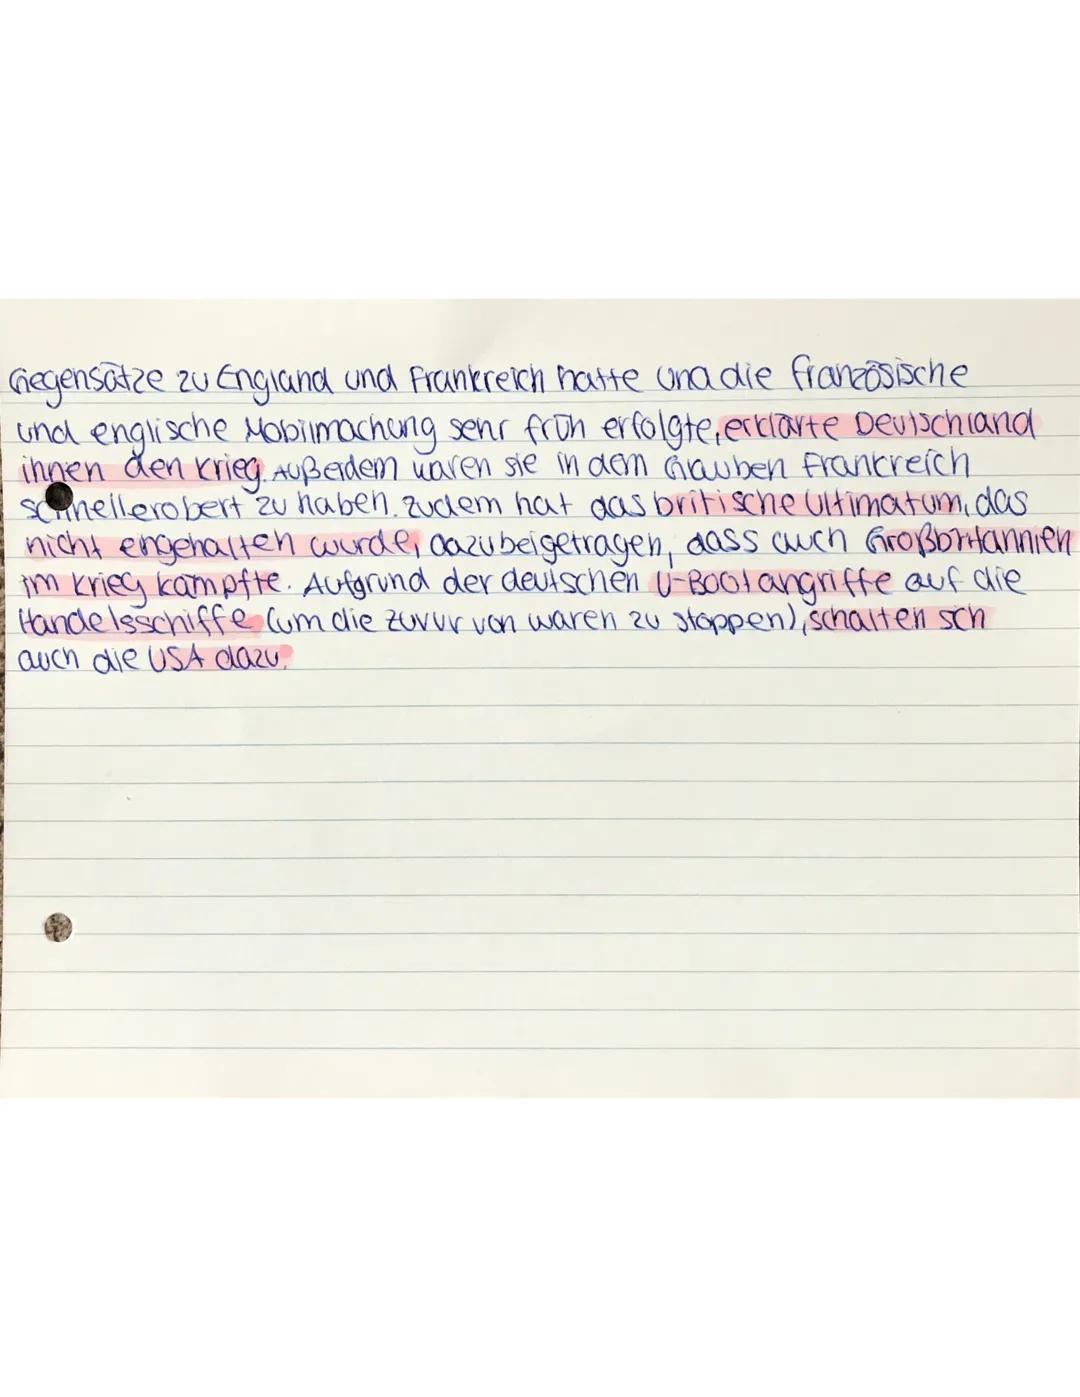 Gegensätze zu England und Frankreich hatte und die französische
und englische Mobilmachung sehr früh erfolgte, erklärte Deutschland
ihnen den Krieg. Außerdem waren sie in dem Glauben Frankreich
schnell erobert zu haben. Zudem hat das britische Ultimatum, das
nicht eingehalten wurde, dazu beigetragen, dass auch Großbritannien
im Krieg kämpfte. Aufgrund der deutschen U-Boot angriffe auf die
Handelsschiffe (um die Zufuhr von waren zu stoppen), schalten sich
auch die USA dazu.